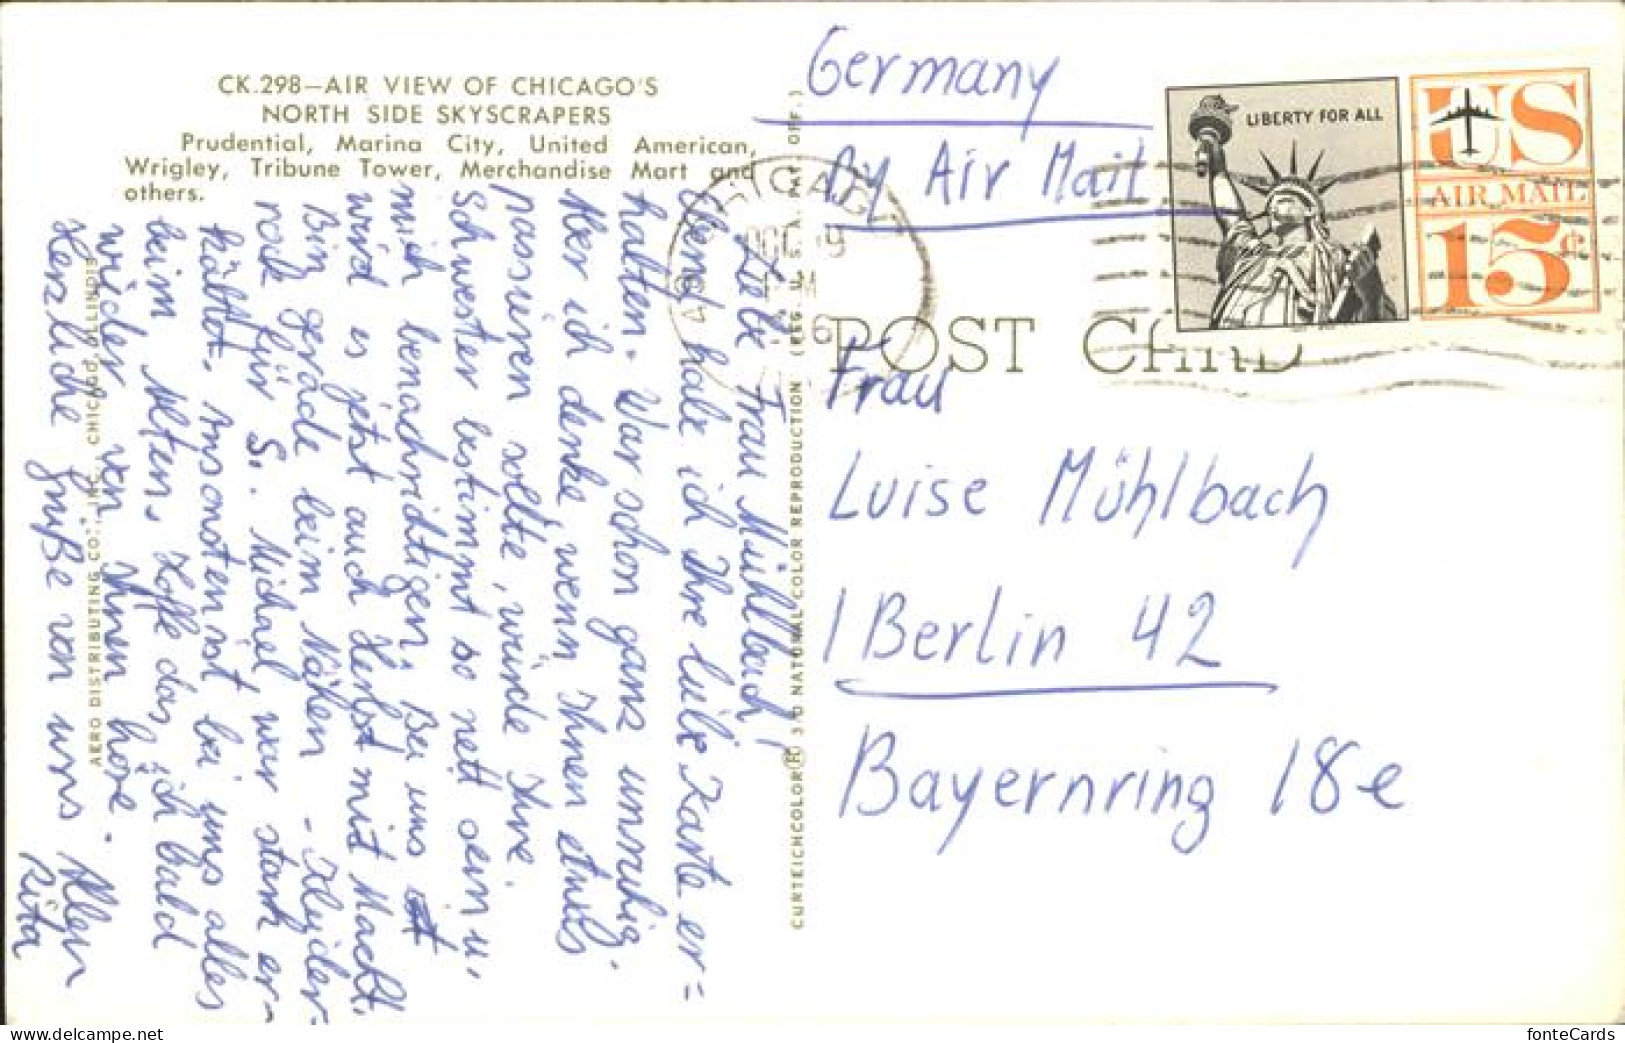 CK.298—AIR VIEW OF CHICAGO'S
NORTH SIDE SKYSCRAPERS
Prudential, Marina City, United American,
Wrigley, Tribune Tower, Merchandise Mart and
others.
Liebe Frau Mühlbach!
Eben habe ich Ihre liebe Karte er=
halten. War schon ganz unruhig.
Aber ich denke, wenn Ihnen etwas
passieren sollte, würde Ihre
Schwester bestimmt so nett sein u.
mich benachrichtigen. Bei uns
wird es jetzt auch Herbst mit Macht.
Bin gerade beim Nähen - Kleider-
rock für S. Michael war stark er-
kältet. Ansonsten ist bei uns alles
beim Alten. Hoffe das, ich bald
wieder von Ihnen höre.
Herzliche Grüße von uns Allen
Rita
AERO DISTRIBUTING CO., INC., CHICAGO, ILLINOIS
CURTEICHCOLOR® 3/D NATURAL COLOR REPRODUCTION (REG. U. S. A. PAT. OFF.)
Germany
By Air Mail
CHICAGO
LIBERTY FOR ALL
US
AIR MAIL
15¢
POST CARD
Frau
Luise Mühlbach
1 Berlin 42
Bayernring 18e
fonteCards
www.delcampe.net